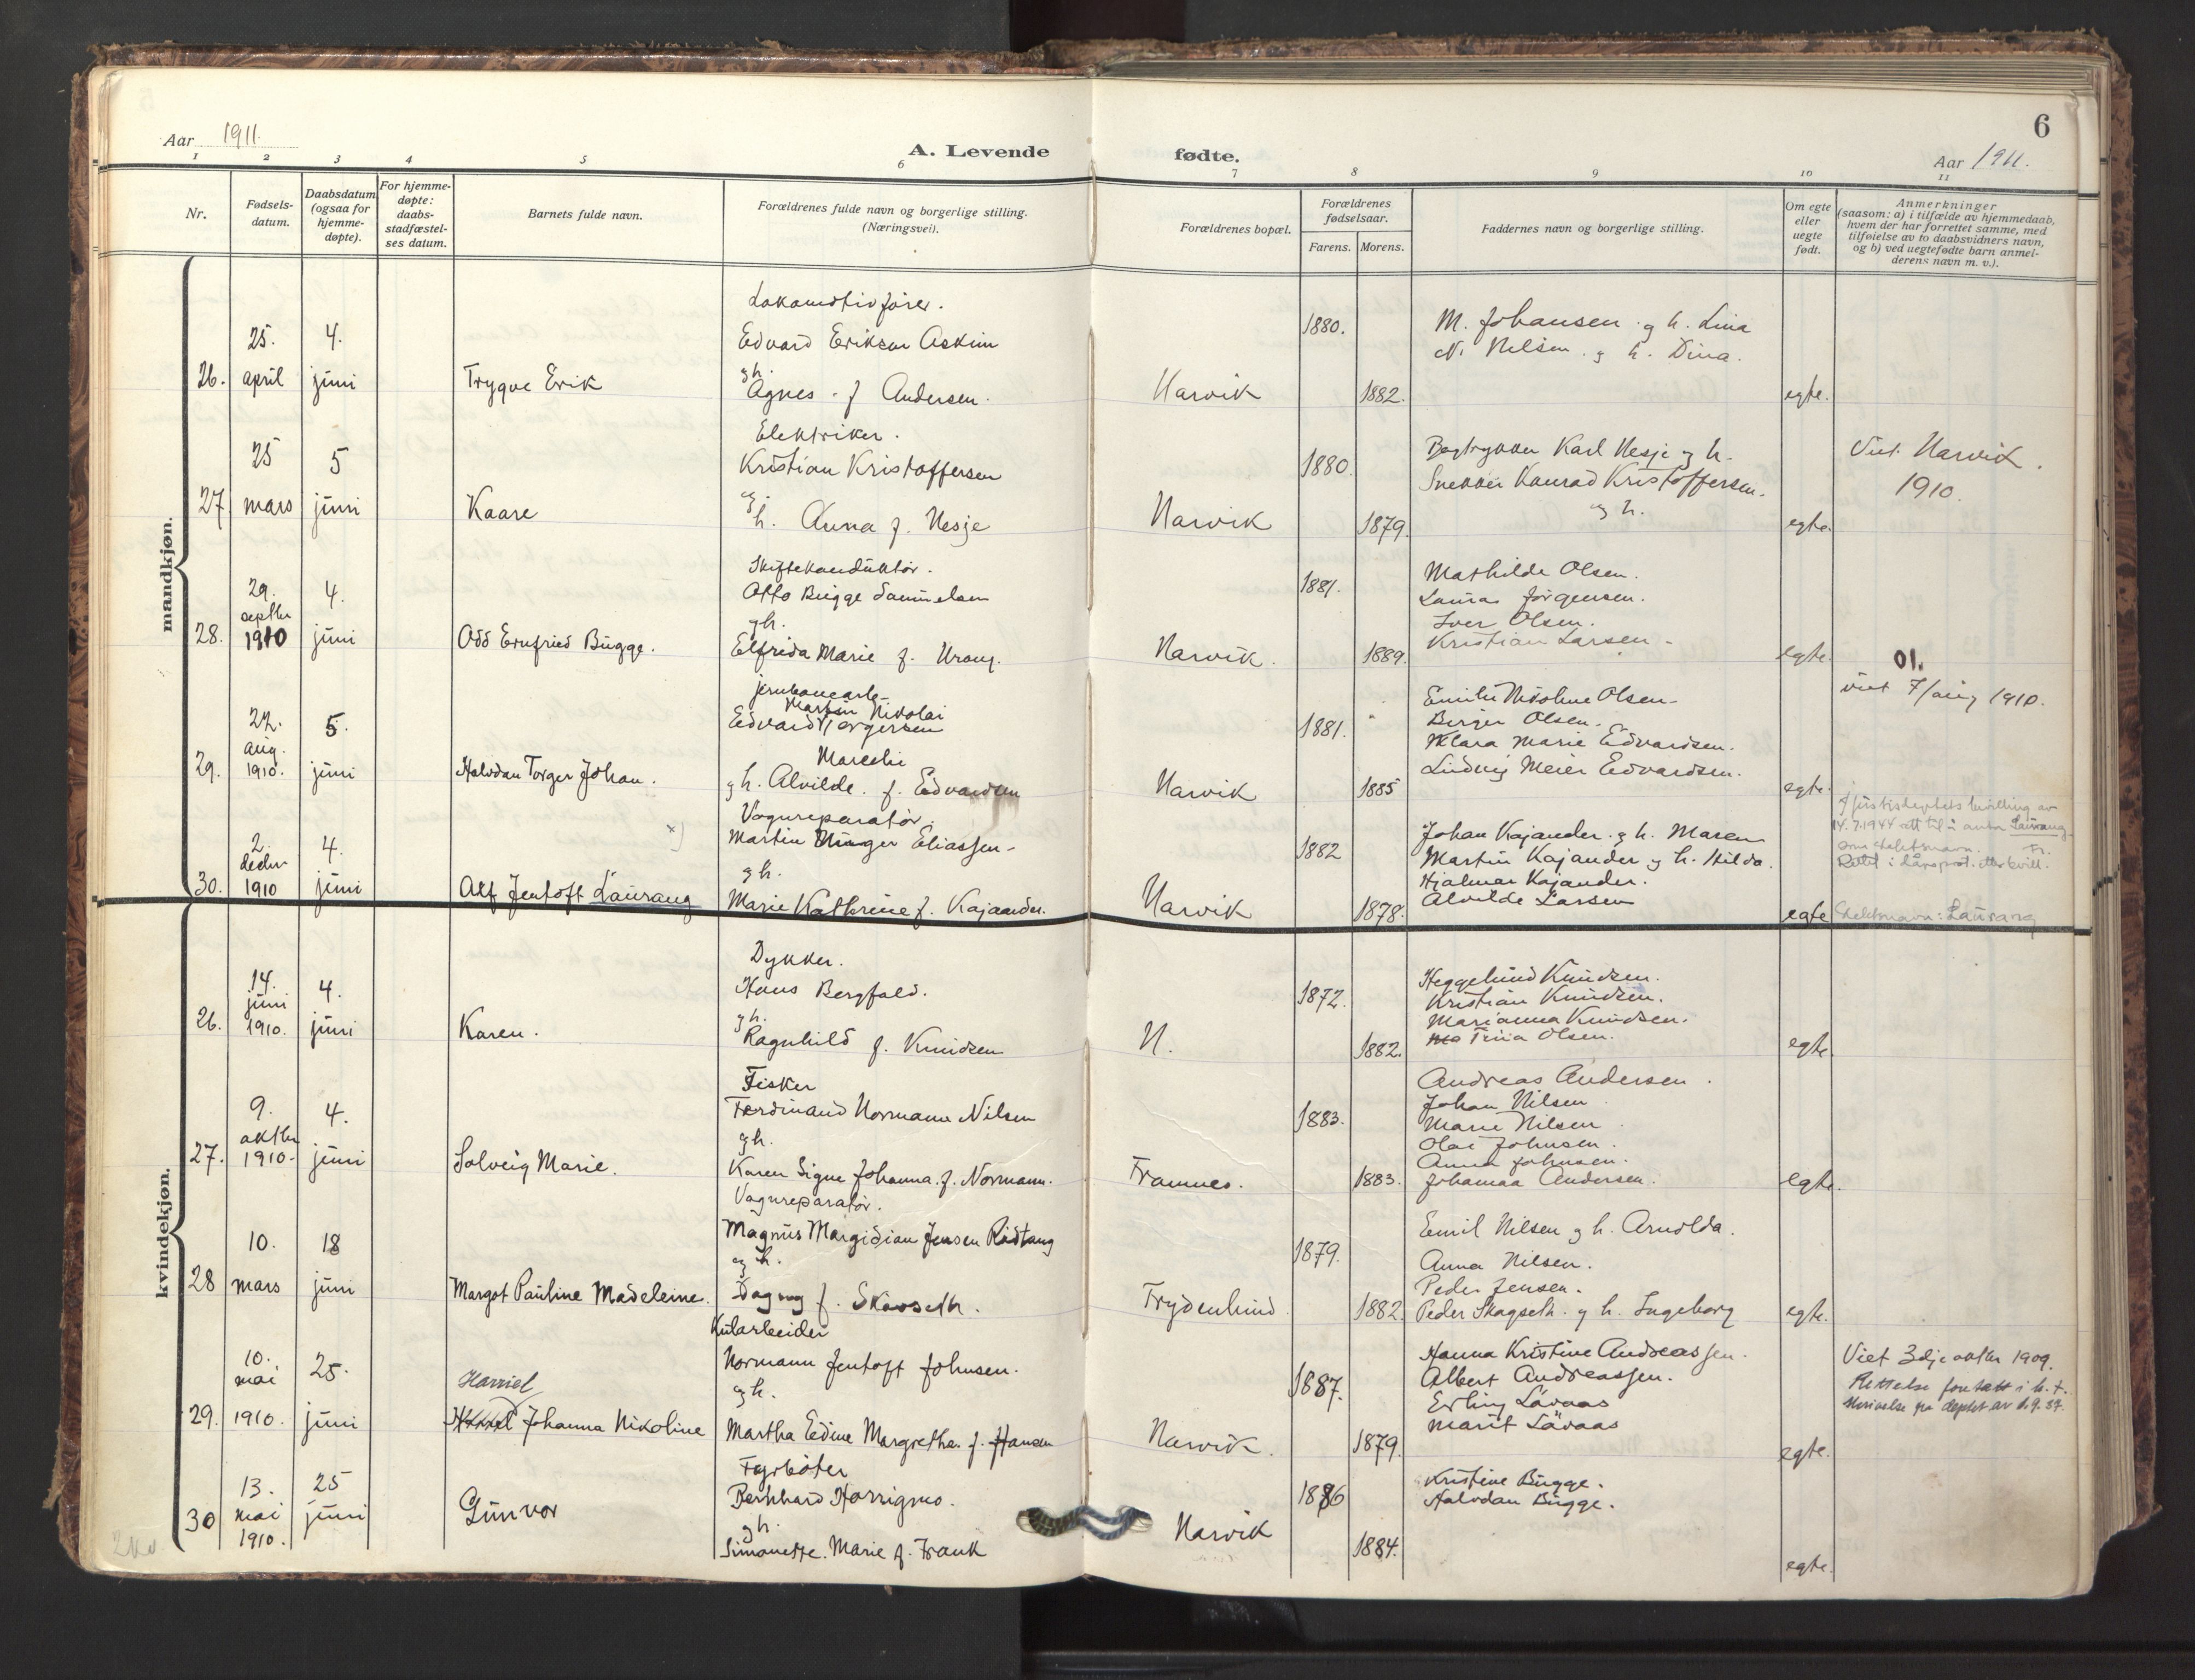 6
Aar 1911.
A. Levende fødte.
Aar 1911.
1 2 3 4 5 6 7 8 9 10 11
Nr.
Fødsels-datum.
Daabsdatum (ogsaa for hjemme-døpte).
For hjemme-døpte: daabs-stadfæstel-ses datum.
Barnets fulde navn.
Forældrenes fulde navn og borgerlige stilling. (Næringsvei).
Forældrenes bopæl.
Forældrenes fødselsaar.
Farens. Morens.
Faddernes navn og borgerlige stilling.
Om egte eller uegte født.
Anmerkninger
(saasom: a) i tilfælde av hjemmedaab,
hvem der har forrettet samme, med
tilføielse av to daabsvidners navn,
og b) ved uegtefødte barn anmel-
derens navn m. v.).
mandkjøn.
26.
25. april
4. juni
Trygve Erik
Lokomotivfører.
Edvard Eriksen Askim
g h.
Agnes f Andersen.
Narvik
1880.
1882.
M. Johansen g h. Lina
N. Nilsen g h. Dina.
egte.
27
25 mars
5 juni
Kaare
Elektriker.
Kristian Kristoffersen
g.
h. Anna f. Nesje
Narvik
1880.
1879.
Karl Nesje g h.
Snekker Konrad Kristoffersen.
g h.
egte.
Viet Narvik.
1910.
28.
29. septbr 1910
4. juni
Odd Ernfried Bugge.
Skiftekonduktør.
Otto Bugge Samuelsen
g h.
Elfrida Marie f.
Narvik.
1881.
1889.
Mathilde Olsen.
Laura Jørgensen.
Iver Olsen.
Kristian Larsen
egte.
01.
viet 7/aug 1910.
29.
22. aug. 1910.
5. juni
Halvdan Torger Johan.
jernbanearb.
Martin Nikolai
Edvard Torgersen
g h. Alvilde f. Edvardsen
Narvik
1881.
1885
Emilie Nikoline Olsen
Berger Olsen.
Klara Marie Edvardsen.
Ludvig Meier Edvardsen.
egte.
30.
2. decbr 1910
4. juni
Alf Jentoft Laurang
x)
Vognreparatør.
Martin Unger Eliassen
g h.
Marie Kathrine f. Kajander.
Narvik
1882
1878.
Johan Kajander g h. Maren
Martin Kajander g h. Hilda.
Hjalmar Kajander.
Alvilde Larsen
egte
14.7.1944 att til å anta Laurang
som slektsnavn.
Slektsnavn: Laurang
kvindekjøn.
26.
14. juni 1910.
4. juni
Karen.
Dykker.
Hans Bergfald.
g h.
Ragnhild f. Knudsen
N.
1872.
1882.
Heggelund Knudsen.
Kristian Knudsen.
Marianna Knudsen.
Trina Olsen.
egte
27.
9. oktbr 1910.
4. juni
Solveig Marie.
Fisker
Ferdinand Normann Nilsen
g h.
Karen Signe Johanna f. Normann.
Framnes.
1883.
1883.
Andreas Andersen.
Johan Nilsen
Marie Nilsen
Olai Johnsen.
Anna Johnsen.
Johanna Andersen.
egte.
28
10. mars
18 juni
Margot Pauline Madeleine.
Vognreparatør.
Magnus Margidian Jensen Rødtang
g h.
Dagny f. Skavseth.
Frydenlund.
1879.
1882.
Emil Nilsen g h. Arnolda.
Anna Nilsen.
Peder Jensen.
Peder Skagseth g h. Ingeborg
egte.
29.
10. mai 1910.
25. juni
Harriet
Johanna Nikoline
Kularbeider
Normann Jentoft Johnsen.
g h.
Martha Edine Margrethe f. Hansen
Narvik.
1887.
1879.
Hanna Kristine Andreassen.
Albert Andreassen.
Erling Løvaas
Marit Løvaas
egte.
Viet 3dje oktbr 1909.
Rettelse foretatt i h. t.
skrivelse fra deptet av
30
13. mai 1910.
25 juni
Gunvor
Fyrbøter
Bernhard Horrigmo.
g h.
Simonette Marie f. Frank
Narvik
1886
1884.
Kristine Bugge.
Halvdan Bugge.
egte.